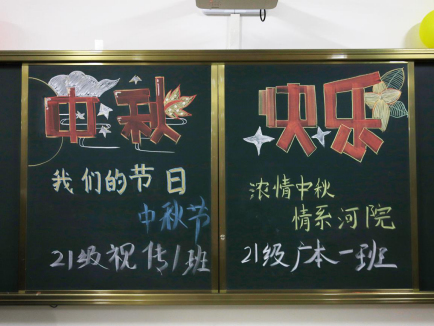 中秋
我们的节日
中秋节
21级视传1班
快乐
浓情中秋
情系河院
21级广本一班